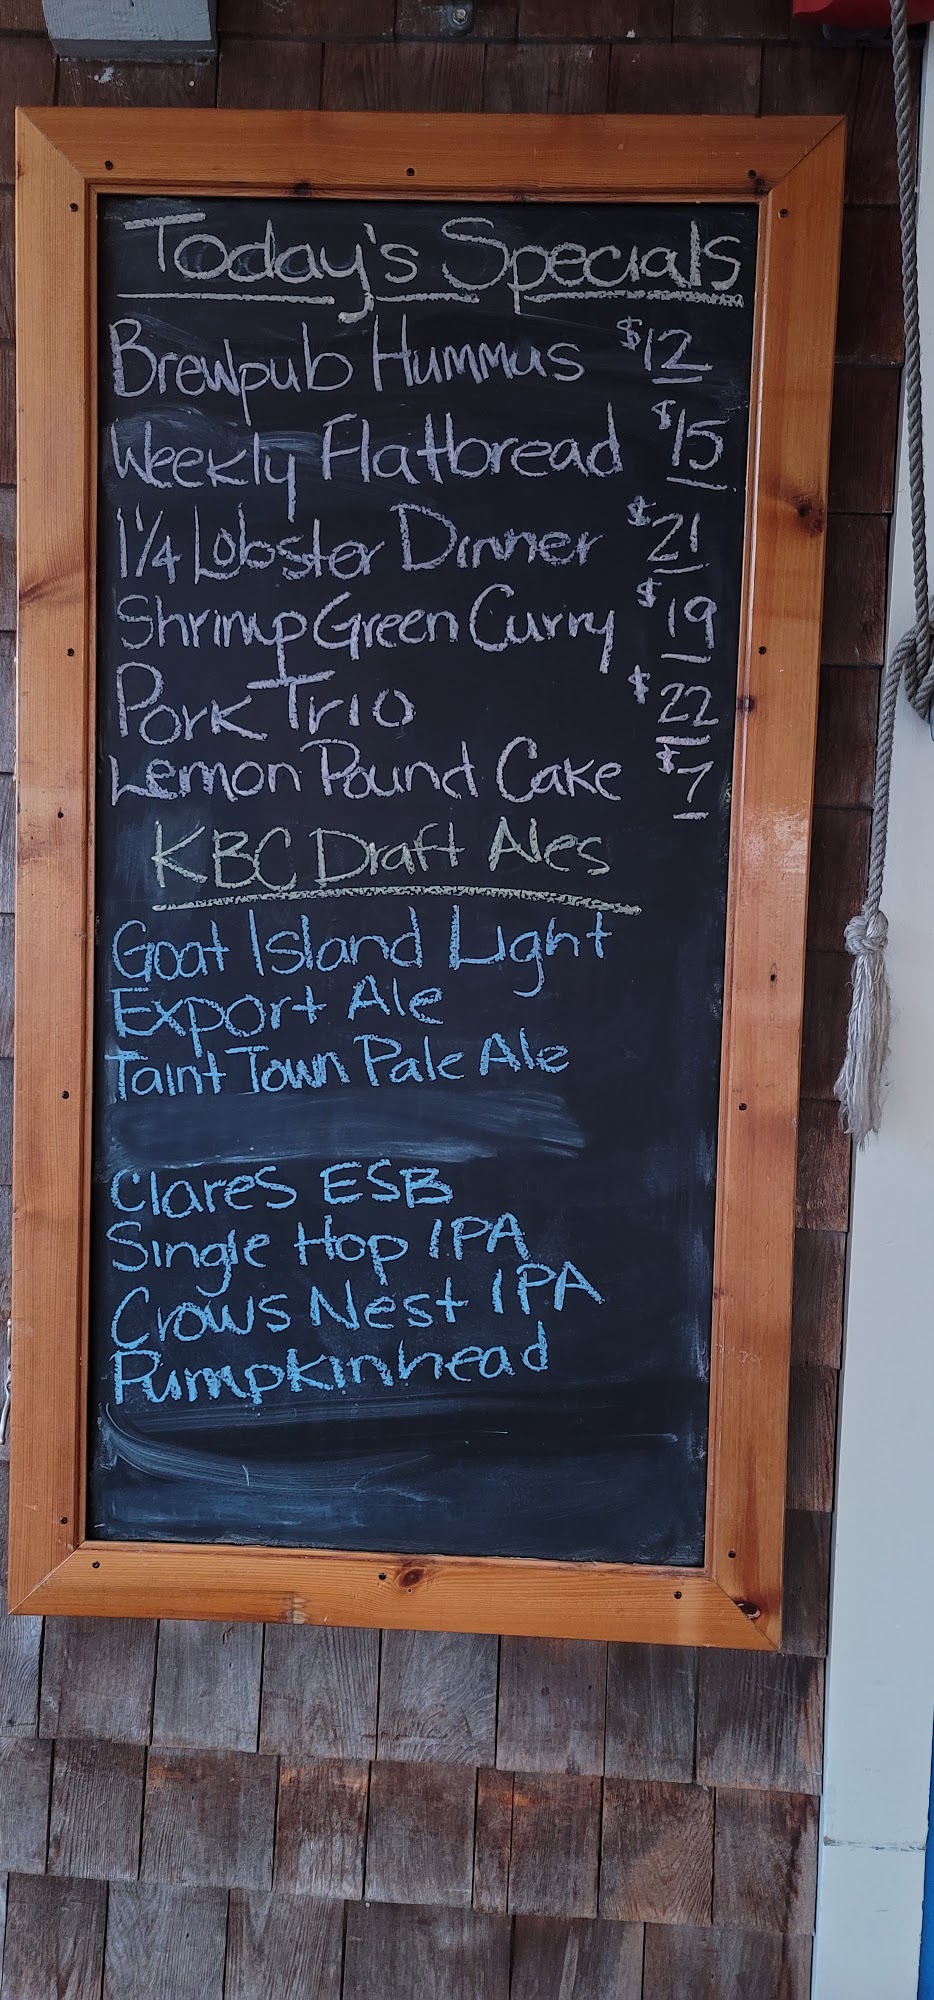 Today's Specials
Brewpub Hummus $12
Weekly Flatbread $15
1 1/4 Lobster Dinner $21
Shrimp Green Curry $19
Pork Trio $22
Lemon Pound Cake $7
KBC Draft Ales
Goat Island Light
Export Ale
Taint Town Pale Ale
Clares ESB
Single Hop IPA
Crows Nest IPA
Pumpkinhead